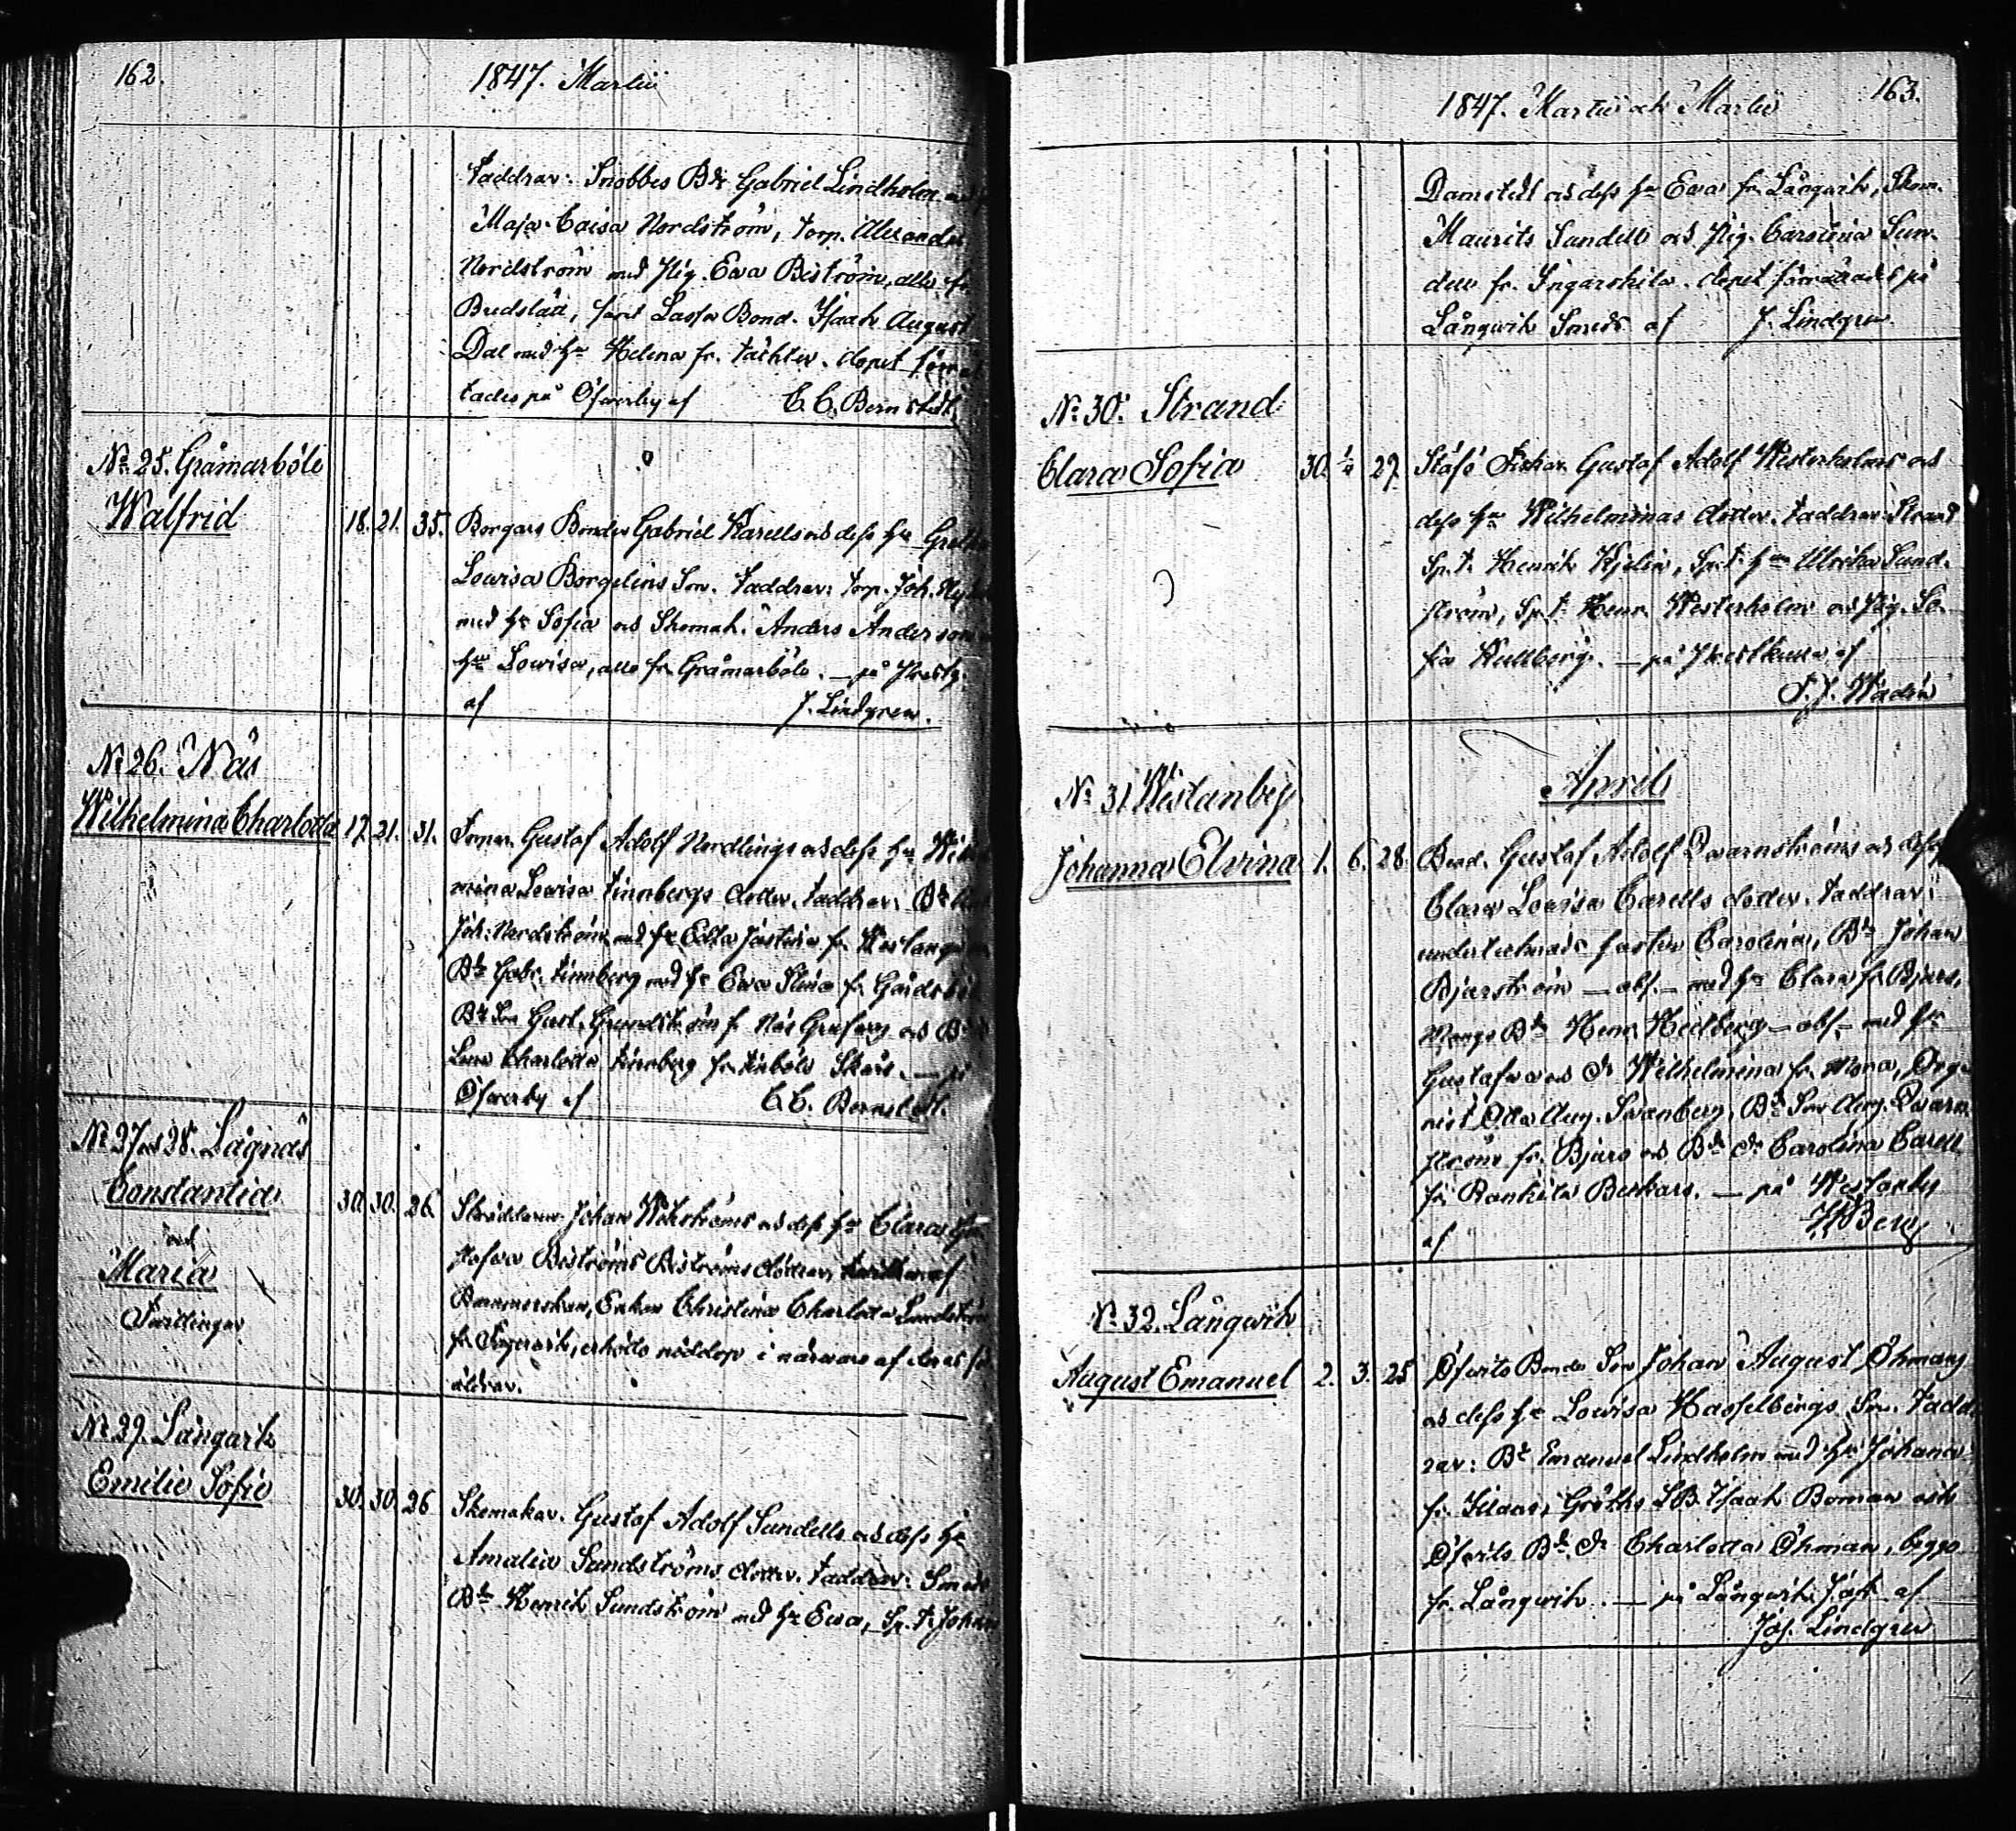 162.
1847. Martii
Faddrar: Snobbes Bdr Gabriel Lindholm
Maja Caisa Nordström, torp. Alexander
Nordström med Pig. Eva Biström, alla fr.
Bredslätt, samt Lassa Bond. Isaak August
Dal med hu Helena fr. Täckter. dopet förrät
tades på Öfverby af C. C. Bernstedt.
No 25. Gråmarböle
Walfrid 18. 21. 35. Borgars Bonden Gabriel Karells och dess hu Greta
Lowisa Borgelins Son. Faddrar: torp. Joh.
med hu Sofia och Skomak. Anders Anderson
hu Lowisa, alla fr. Gråmarböle. — på Prestg.
af J. Lindgren.
No 26. Näs
Wilhelmina Charlotta 17. 21. 31. Gustaf Adolf Nordlings och dess hu Wilhel
mina Lowisa Finnbergs dotter. Faddrar: Bdr
Joh. Nordström med hu Edla Justina fr.
Bdr Gabr. Finnberg med hu Ewa Stina fr.
Bdr Son Gust. Grundström fr. Näs och
Lena Charlotta Finnberg fr. — på
Öfverby af C. C. Bernstedt.
No 27 och 28. Lågnäs
Constantia 30. 30. 26. Skräddaren Johan Wikströms och dess hu Clara Gu
och
stafva Biströms döttrar,
Maria
Enkan Christina Charlotta
Tvillingar
fr. Fagervik, erhöllo nöddop i närvaro af deras för
äldrar.
No 29. Långvik
Emilie Sofie 30. 30. 26 Skomakar. Gustaf Adolf Sundells och dess hu
Amalia Sundströms dotter. Faddrar: Smeds
Bdr Henrik Sundström med hu Ewa, Sp. t. Johan
163.
1847. Martii och Martii
Damstedt och dess hu Ewa fr. Långwik, Skom.
Maurits Sundell och Pig. Carolina Sun-
dell fr. Ingarskila. dopet förrättades på
Långwik Smeds af J. Lindgren.
No 30. Strand
Clara Sofia 30. 1/4 27. Gustaf Adolf Westerholms och
dess hu Wilhelminas dotter. Faddrar: Strand
Sp. t. Henrik Kjelin, Sp. t. hu Ulrika Sund-
ström, Sp. t. Henr. Westerholm och Pig. So-
fia Kullberg. — på Prestkulla af
Wadén
April
No 31 Westanby
Johanna Elvina 1. 6. 28. Bond. Gustaf Adolf Qvarnströms och dess
Clara Lowisa Carells dotter. Faddrar:
undertecknads Carolina, Bdr Johan
Bjurström — abs. — med hu Clara fr. Bjurs,
Wrangs Bdr Henr. Hedberg — abs. — med hu
Gustafva och Dr Wilhelmina fr. Mona, Orga
nist Otto Aug. Svanberg, Bdr Son Aug. Qvarn
ström fr. Bjurs och Bdr Dr Carolina Carell
fr. Rankila Beckars. — på Westanby
af Berg
No 32. Långwik
August Emanuel 2. 3. 25 Öfvits Bonde Son Johan August Öhmans
och dess hu Lowisa Hasselbergs Son. Fadd
rar: Bdr Emanuel Lindholm med hu Johanna
fr. Isaak Boman och
Öfvits Bdr Dr Charlotta Öhman, begge
fr. Långwik. — på Långwik af
Jos. Lindgren